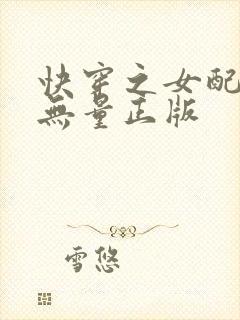 快穿之女配
無量正版
雪悠